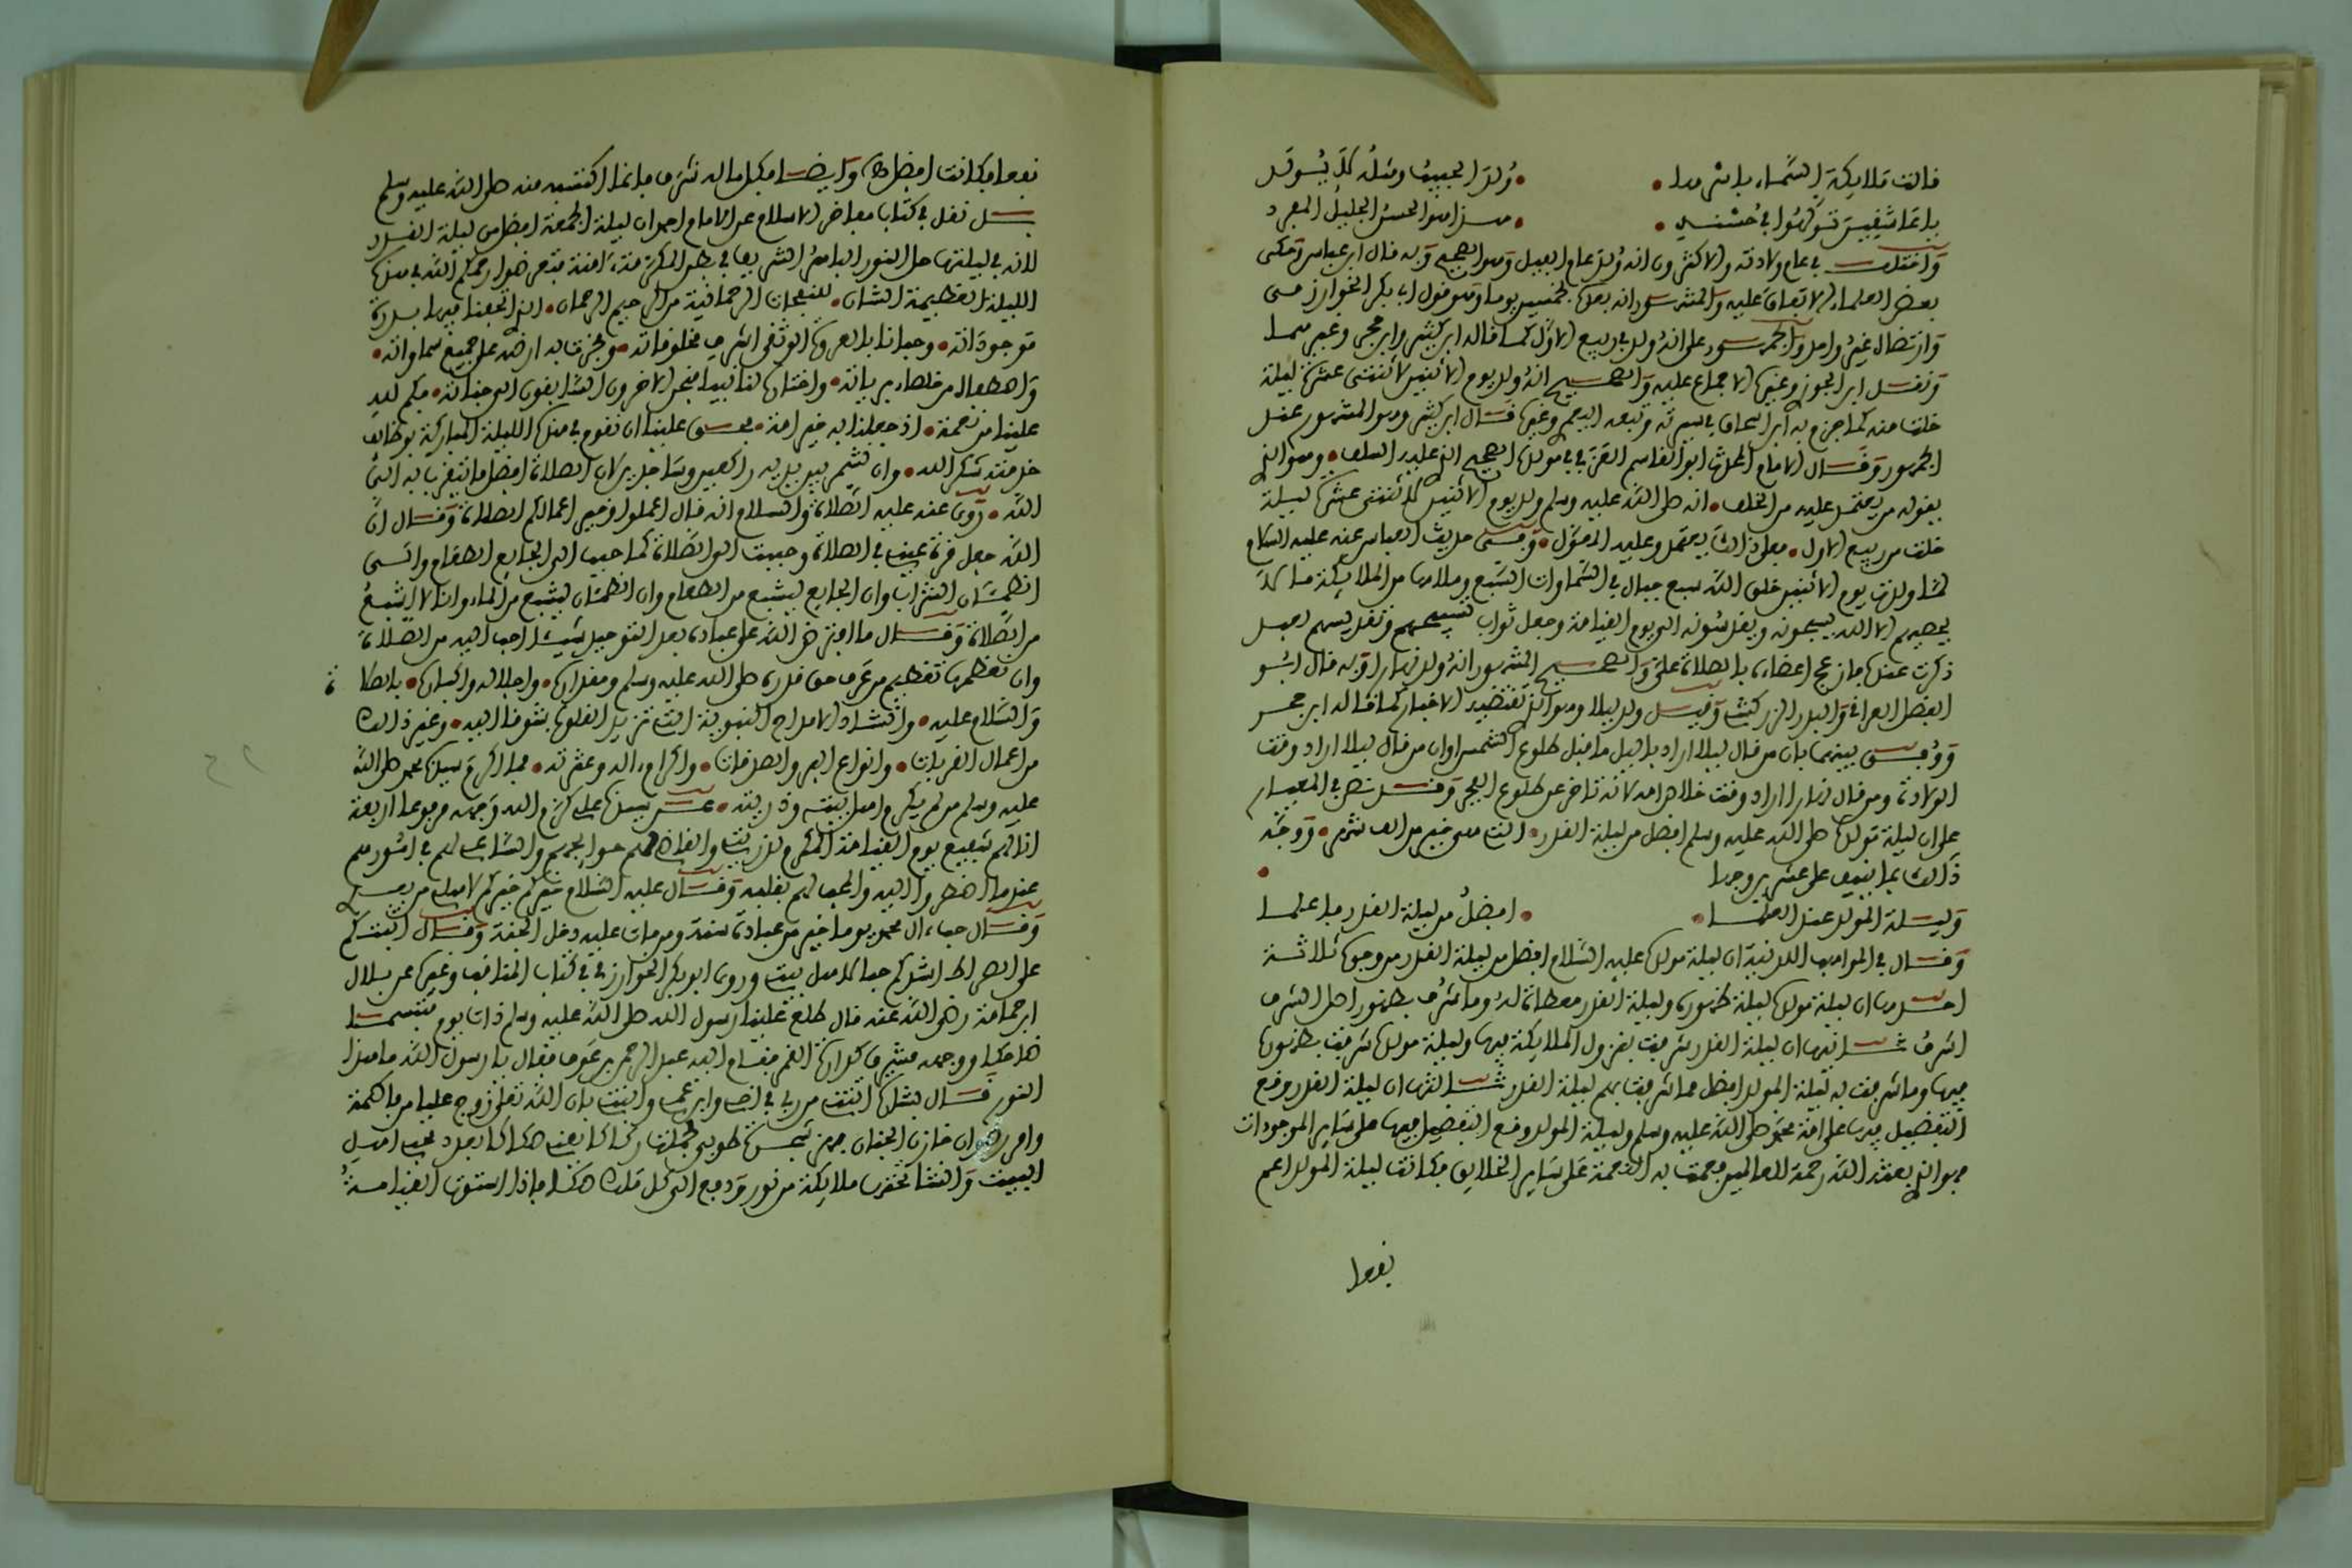 قالت ملايكة السماء باسرها • ولد الحبيب ومثله لا يولد
يا عاشقين تولهوا في حسنه • هذا هو الحسن الجليل المفرد
واختلف في عام ولادته والاكثرون انه ولد عام الفيل وهو الصحيح وبه قال ابن عباس وحكى
بعض العلماء الاتفاق عليه والمشهور انه بعده بخمسين يوما وهو قول ابي بكر الخوارزمي
وارتضاه غير واحد والجمهور على انه ولد في ربيع الاول كما قاله ابن كثير وابن حجر وغيرهما
ونقل ابن الجوزي وغيره الاجماع عليه والصحيح انه ولد يوم الاثنين لاثنتي عشرة ليلة
خلت منه كما جزم به ابن اسحاق في سيرته وتبعه اليعمري وغيره قال ابن كثير وهو المشهور عند
الجمهور وقال الامام ابو القاسم العزفي في مولده الصحيح الذي عليه السلف • وهو الذي
يقوله من يعتمد عليه من الخلف • انه صلى الله عليه وسلم ولد يوم الاثنين لاثنتي عشرة ليلة
خلت من ربيع الاول • فعلى ذلك يعتمد وعليه المعول • وفي حديث ابن عباس عنه عليه السلام
لما ولدت يوم الاثنين خلق الله سبع جبال في السماوات السبع وملاها من الملايكة ما لا
يحصيهم الا الله يسبحونه ويقدسونه الى يوم القيامة وجعل ثواب تسبيحهم وتقديسهم لعبد
ذكرت عنده فازعج اعضاءه بالصلاة علي والصحيح المشهور انه ولد نهارا وبه قال ابو
الفضل العراقي والبدر الزركشي وقيل ولد ليلا وهو الذي تقتضيه الاخبار كما قاله ابن حجر
ووفق بينهما بان من قال ليلا اراد بالليل ما قبل طلوع الشمس او ان من قال ليلا اراد وقت
الولادة ومن قال نهارا اراد وقت خلاصه لانه تاخر عن طلوع الفجر وقد نص في المعيار
على ان ليلة مولده صلى الله عليه وسلم افضل من ليلة القدر • التي هي خير من الف شهر • ووجه
ذلك بما ينيف على عشرين وجها •
وليلة المولد عند العلما • • افضل من ليلة القدر فاعلما
وقال في المواهب اللدنية ان ليلة مولده عليه السلام افضل من ليلة القدر من وجوه ثلاثة
احدها ان ليلة مولده ليلة ظهوره وليلة القدر معطاة له وما شرف بظهور اصل الشرف
اشرف ثانيها ان ليلة القدر شرفت بنزول الملايكة فيها وليلة مولده شرفت بظهوره
فيها وما شرفت به ليلة المولد افضل مما شرفت بهم ليلة القدر ثالثها ان ليلة القدر وقع
التفضيل فيها على امة محمد صلى الله عليه وسلم وليلة المولد وقع التفضيل فيها على ساير الموجودات
فهو الذي بعثه الله رحمة للعالمين فعمت به النعمة على ساير الخلايق فكانت ليلة المولد اعم
نفعا
نفعا فكانت افضل وايضا فكل ماله شرف فانما اكتسبه منه صلى الله عليه وسلم
بل نقل في كتاب مفاخر الاسلام عن الامام احمد ان ليلة الجمعة افضل من ليلة القدر
لانه في ليلتها حل النور الباهر الشريف في بطن المكرمة ءامنة فتعرضوا رحمكم الله في هذه
الليلة العظيمة الشان • للنفحات الرحمانية من الرحيم الرحمان • الذي اتحفنا فيها بسدرة
موجوداته • وحبانا بالعروة الوثقى اشرف مخلوقاته • ولحرمته به ارضه على جميع سماواته •
واصطفاه من خلصاء برياته • واختاره لنا نبيا فنحن الاخرون السابقون الى جناته • فكم له
علينا من نعمة • اذ جعلنا به خير امة • فحق علينا ان نقوم في هذه الليلة المباركة بوظايف
خدمته شكرا لله • وان نستمر بين يديه راكعين وساجدين لان الصلاة افضل ما يتقرب به الى
الله • روي عنه عليه الصلاة والسلام انه قال اعملوا وخير اعمالكم الصلاة وقال ان
الله جعل قرة عيني في الصلاة وحببت الي الصلاة كما حبب الى الجايع الطعام والى
الظمئان الشراب وان الجايع ليشبع من الطعام وان الظمئان ليشبع من الماء وانا لا اشبع
من الصلاة وقال ما افترض الله على عباده بعد التوحيد شيئا احب اليه من الصلاة
وان تعظموه تعظيم من عرف حق قدره صلى الله عليه وسلم ومقداره • واجلاله واكباره • بالصلاة
والسلام عليه • وانشاد الامداح النبوية التي تزيد القلوب شوقا اليه • وغير ذلك
من اعمال القربات • وانواع البر والصدقات • واكرام ءاله وعترته • فما اكرم سيدنا محمد صلى الله
عليه وسلم من لم يكرم اهل بيته وذريته • عن سيدنا علي كرم الله وجهه مرفوعا اربعة
انا لهم شفيع يوم القيامة المكرم لذريتي والقاضي لهم حوايجهم والساعي لهم في امورهم
عند ما اضطروا اليه والمحب لهم بقلبه وقال عليه السلام خيركم خيركم لاهلي من بعدي
وقال حب ءال محمد يوما خير من عبادة سنة ومن مات عليه دخل الجنة وقال اثبتكم
على الصراط اشدكم حبا لاهل بيتي وروى ابو بكر الخوارزمي في كتاب المناقب وغيره عن بلال
ابن حمامة رضي الله عنه قال طلع علينا رسول الله صلى الله عليه وسلم ذات يوم متبسما
ضاحكا ووجهه مشرق كدارة القمر فقام اليه عبد الرحمن بن عوف فقال يا رسول الله ما هذا
النور قال بشارة اتتني من ربي في اخي وابن عمي وابنتي بان الله تعلى زوج عليا من فاطمة
وامر رضوان خازن الجنان فهز شجرة طوبى فحملت رقاقا يعني صكاكا بعدد محبي اهل
البيت وانشا تحتها ملايكة من نور ودفع الى كل ملك صكا فاذا استوت القيامة